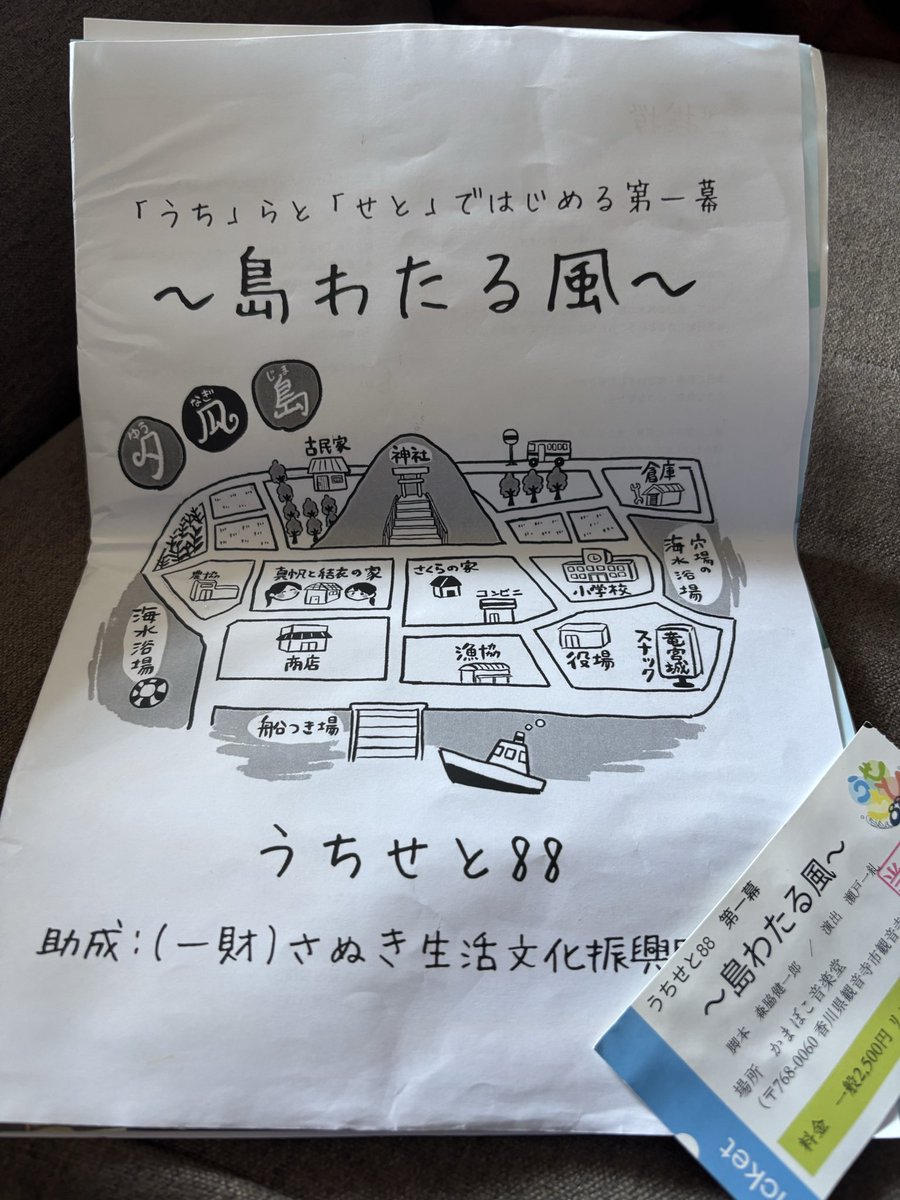 「うち」らと「せと」ではじめる第一幕
～島わたる風～
ゆう なぎ じま
夕凪島
古民家
神社
倉庫
穴場の海水浴場
農協
真帆と結衣の家
さくらの家
コンビニ
小学校
海水浴場
商店
漁協
役場
スナック
竜宮城
船つき場
うちせと88
助成:(一財)さぬき生活文化振興
うちせと88 第一幕
～島わたる風～
脚本 森脇健一郎 / 演出 瀬戸一
場所 かまぼこ音楽堂
(〒768-0060 香川県観音寺市観音寺
料金 一般2,500円
icket